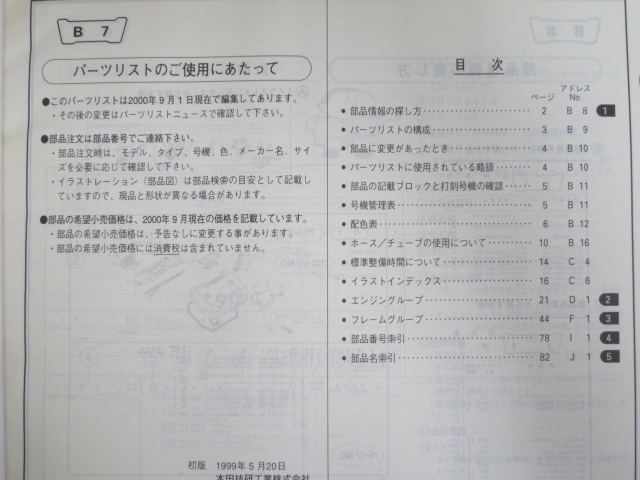 B 7
パーツリストのご使用にあたって
●このパーツリストは2000年9月1日現在で編集してあります。
・その後の変更はパーツリストニュースで確認して下さい。
●部品注文は部品番号でご連絡下さい。
・部品注文時は、モデル、タイプ、号機、色、メーカー名、サイ
ズを必要に応じて確認して下さい。
・イラストレーション（部品図）は部品検索の目安として記載し
ていますので、現品と形状が異なる場合があります。
●部品の希望小売価格は、2000年9月現在の価格を記載しています。
・部品の希望小売価格は、予告なしに変更する事があります。
・部品の希望小売価格には消費税は含まれていません。
初版 1999年5月20日
本田技研工業株式会社
目 次
ページ アドレス No.
●部品情報の探し方 2 B 8 1
●パーツリストの構成 3 B 9
●部品に変更があったとき 4 B 10
●パーツリストに使用されている略語 4 B 10
●部品の記載ブロックと打刻号機の確認 5 B 11
●号機管理表 5 B 11
●配色表 6 B 12
●ホース／チューブの使用について 10 B 16
●標準整備時間について 14 C 4
●イラストインデックス 16 C 6
●エンジングループ 21 D 1 2
●フレームグループ 44 F 1 3
●部品番号索引 78 I 1 4
●部品名索引 82 J 1 5